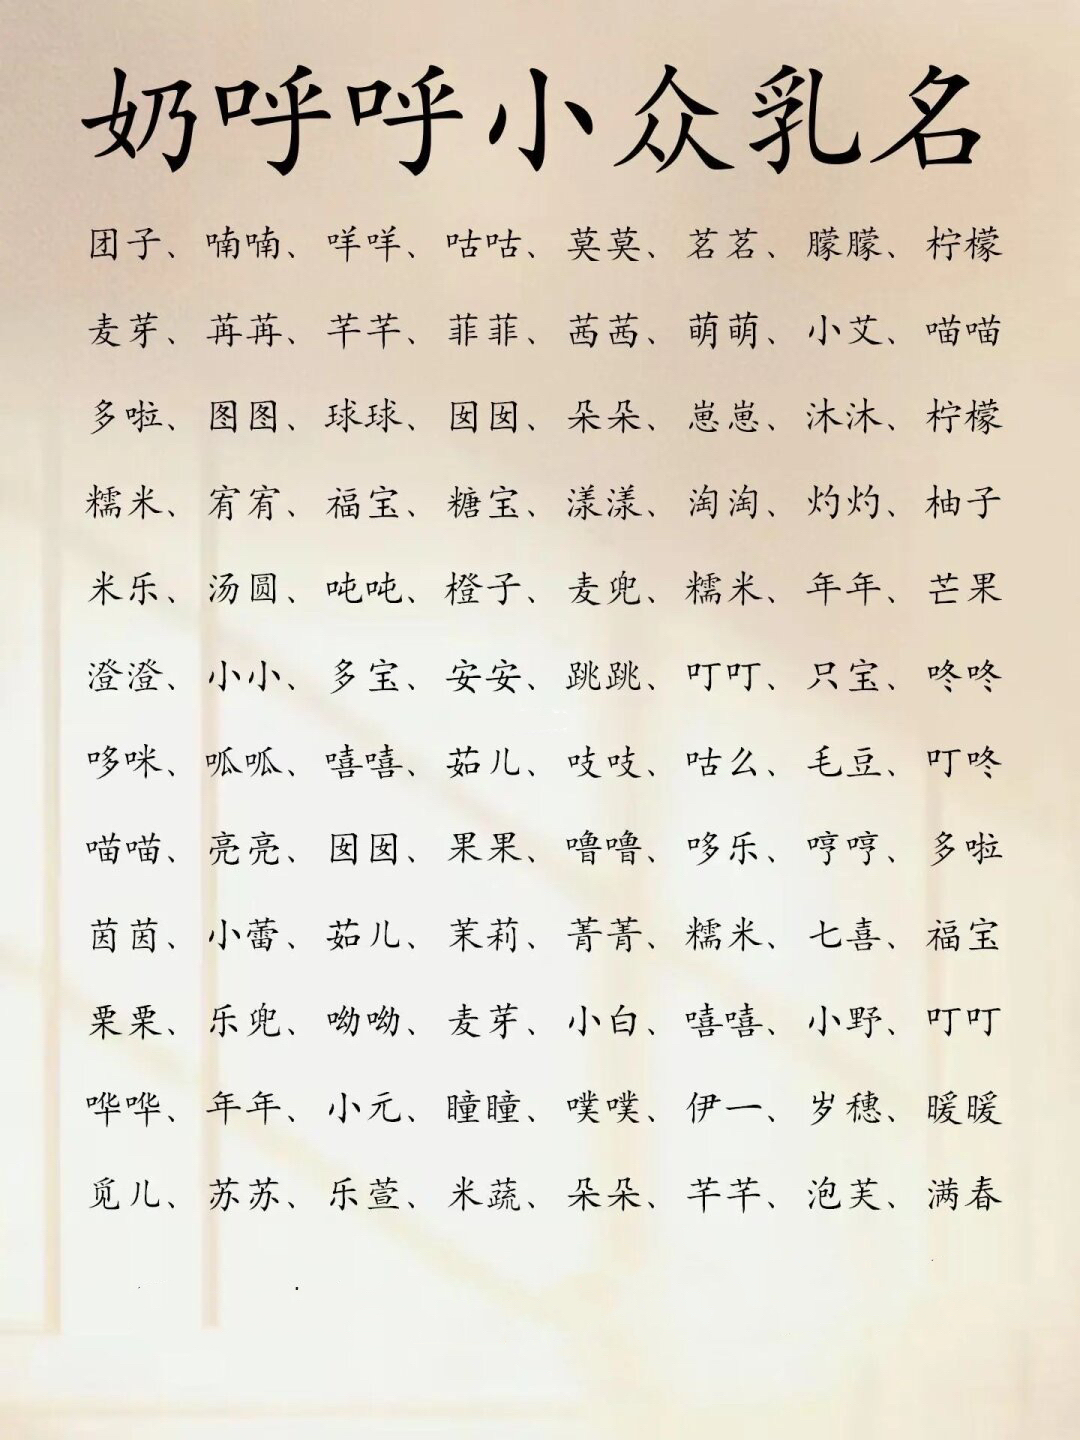 奶呼呼小众乳名
团子、喃喃、咩咩、咕咕、莫莫、茗茗、朦朦、柠檬
麦芽、苒苒、芊芊、菲菲、茜茜、萌萌、小艾、喵喵
多啦、图图、球球、囡囡、朵朵、崽崽、沐沐、柠檬
糯米、宥宥、福宝、糖宝、漾漾、淘淘、灼灼、柚子
米乐、汤圆、吨吨、橙子、麦兜、糯米、年年、芒果
澄澄、小小、多宝、安安、跳跳、叮叮、只宝、咚咚
哆咪、呱呱、嘻嘻、茹儿、吱吱、咕么、毛豆、叮咚
喵喵、亮亮、囡囡、果果、噜噜、哆乐、哼哼、多啦
茵茵、小蕾、茹儿、茉莉、菁菁、糯米、七喜、福宝
栗栗、乐兜、呦呦、麦芽、小白、嘻嘻、小野、叮叮
哗哗、年年、小元、瞳瞳、噗噗、伊一、岁穗、暖暖
觅儿、苏苏、乐萱、米蔬、朵朵、芊芊、泡芙、满春